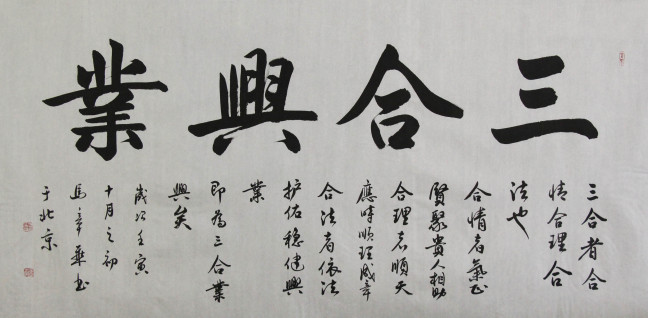 三合興業
三合者合
情合理合
法也
合情者氣正
賢聚貴人相助
合理者順天
應時順理成章
合法者依法
护佑稳健興
業
即為三合業
興矣
歲次壬寅
十月之初
馬章乘书
于北京